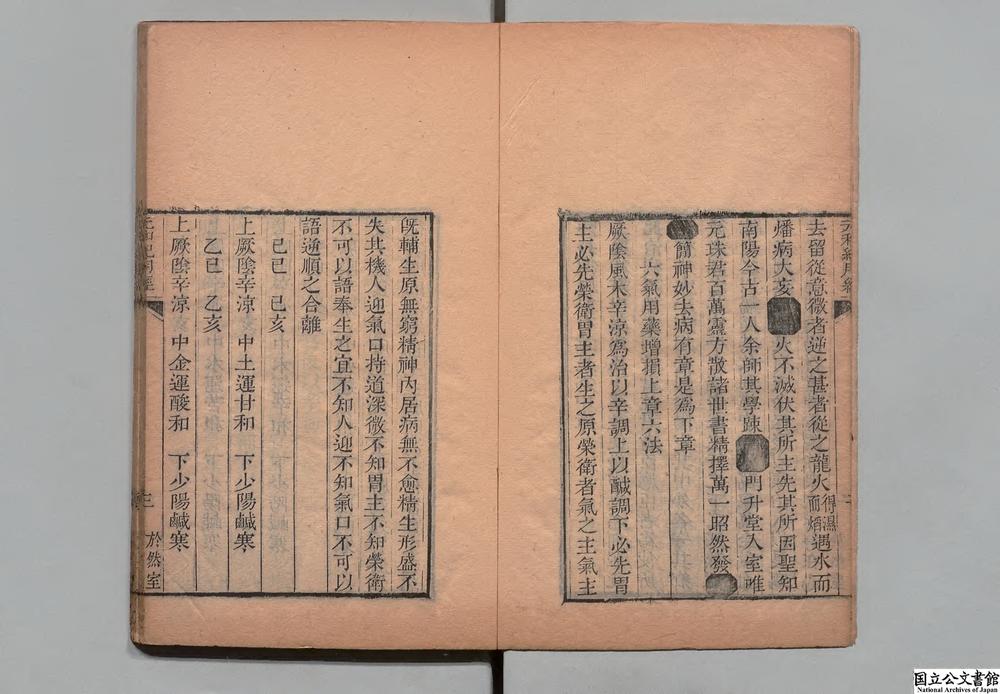 去留從意微者逆之甚者從之龍火得濕而焰遇水而
燔病大妄火不滅伏其所主先其所因聖知
南陽今古一人余師其學踈門升堂入室唯
元珠君百萬靈方散諸世書精擇萬一昭然發
簡神妙去病有章是為下章
六氣用藥增損上章六法
厥陰風木辛涼為治以辛調上以鹹調下必先胃
主必先榮衛胃主者生之原榮衛者氣之主氣主
旣輔生原無窮精神內居病無不愈精生形盛不
失其機人迎氣口持道深微不知胃主不知榮衛
不可以語奉生之宜不知人迎不知氣口不可以
語逆順之合離
己巳 己亥
上厥陰辛涼 中土運甘和 下少陽鹹寒
乙巳 乙亥
上厥陰辛涼 中金運酸和 下少陽鹹寒
三
於然室
国立公文書館
National Archives of Japan